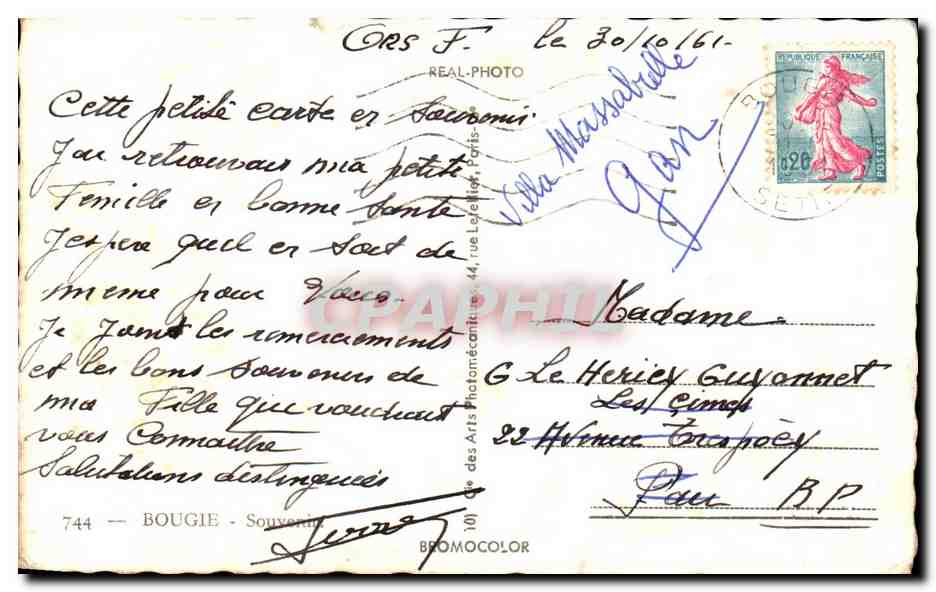 Ors F. le 30/10/61-
REAL-PHOTO
Cette petite carte en souvenir
J'ai retrouvais ma petite
Femille en bonne sante
J'espere quel en soit de
meme pour Vous-
Je Joint les remerciements
et les bons souvenirs de
ma Fille qui voudrait
vous Connaitre
Salutations distinguées
744 — BOUGIE - Souvenir
BROMOCOLOR
10) Cie des Arts Photomécaniques, 44, rue Letellier, Paris-
Villa Massabielle
Gan
REPUBLIQUE FRANÇAISE
0,20
POSTES
BOUG
SETIF
CPAPHIL
Madame
G Le Hericy Guyonnet
Les Cimes
22 Avenue Trespoëy
Pau BP